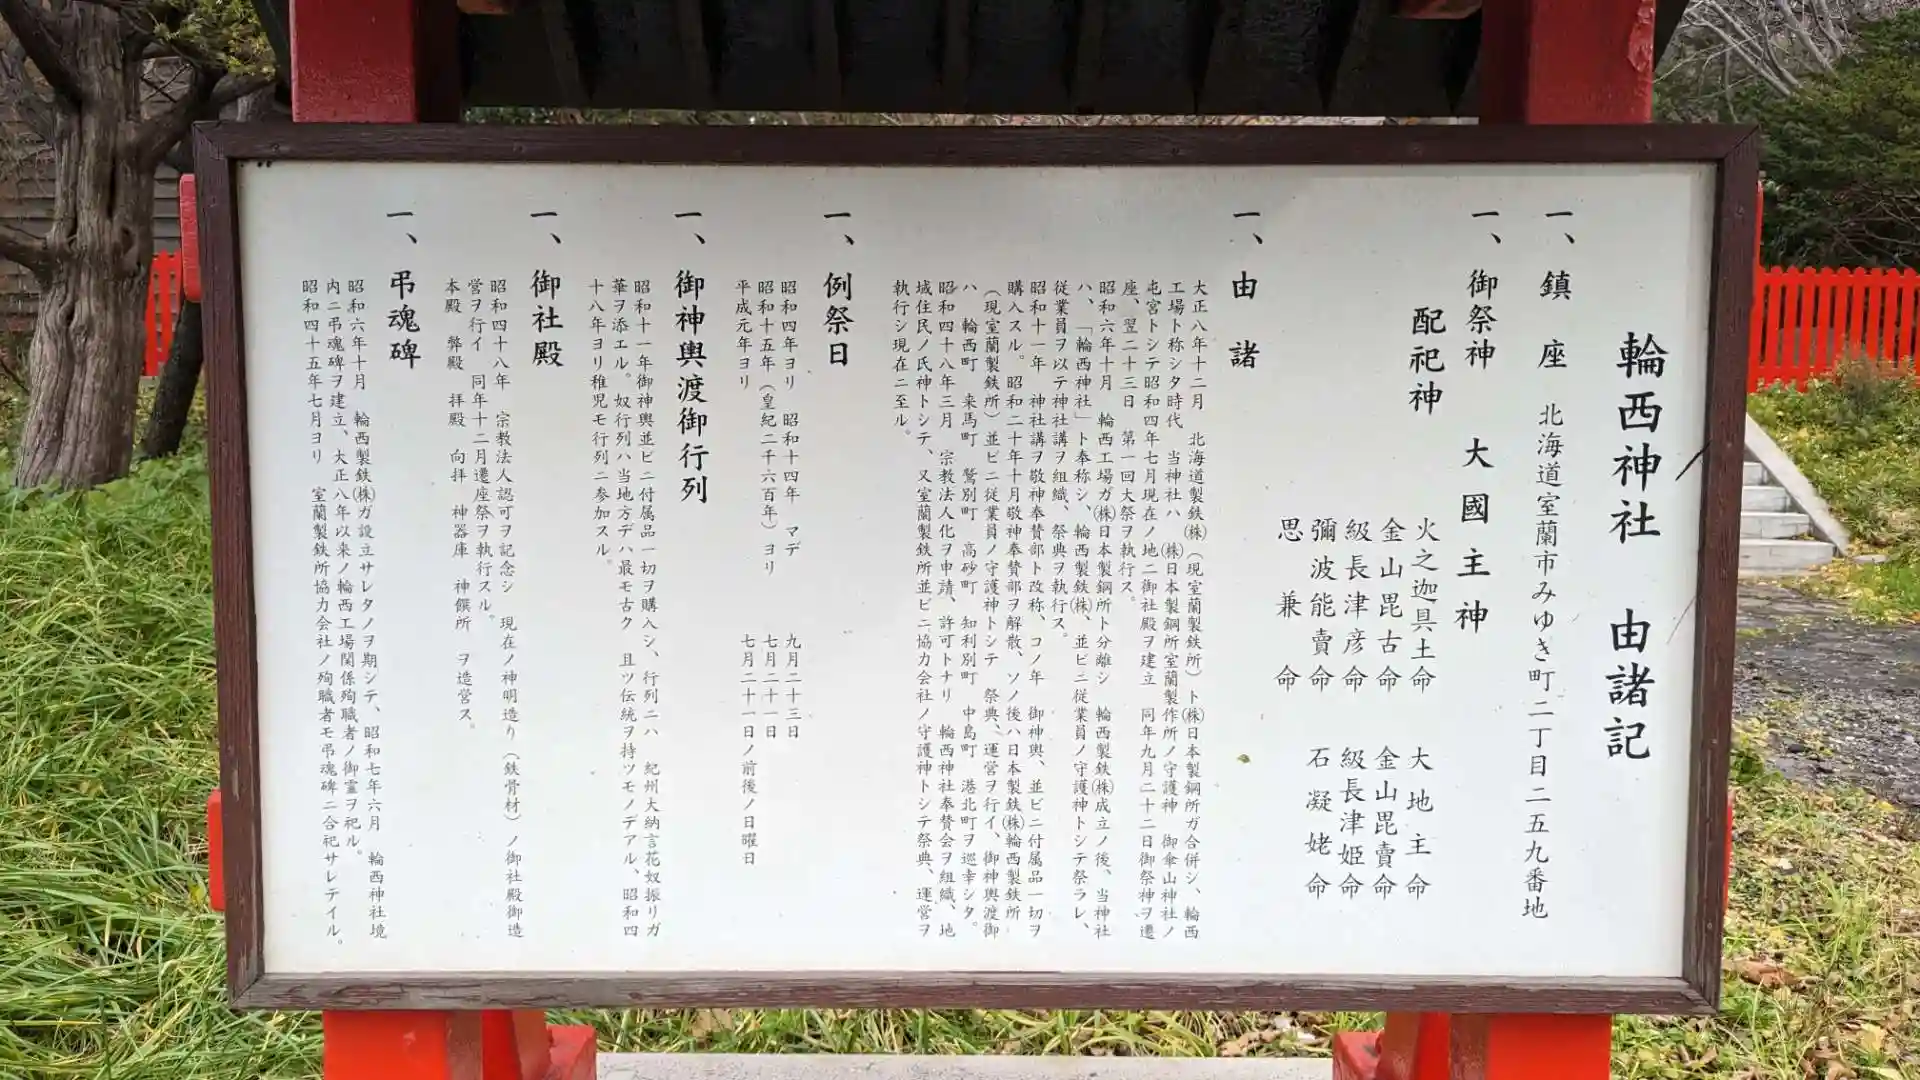 輪西神社　由諸記
一、鎮　座　北海道室蘭市みゆき町二丁目二五九番地
一、御祭神　大國主神
配祀神
火之迦具土命　大地主命
金山毘古命　金山毘賣命
級長津彦命　級長津姫命
彌波能賣命　石凝姥命
思兼命
一、由　諸
大正八年十二月　北海道製鉄㈱（現室蘭製鉄所）ト㈱日本製鋼所ガ合併シ、輪西
工場ト称シタ時代　当神社ハ　㈱日本製鋼所室蘭製作所ノ守護神　御傘山神社ノ
屯宮トシテ昭和四年七月現在ノ地ニ御社殿ヲ建立　同年九月二十二日御祭神ヲ遷
座、翌二十三日　第一回大祭ヲ執行ス。
昭和六年十月　輪西工場ガ㈱日本製鋼所ト分離シ　輪西製鉄㈱成立ノ後、当神社
ハ、「輪西神社」ト奉称シ、輪西製鉄㈱、並ビニ従業員ノ守護神トシテ祭ラレ、
従業員ヲ以テ神社講ヲ組織、祭典ヲ執行ス。
昭和十一年　神社講ヲ敬神奉賛部ト改称、コノ年　御神輿、並ビニ付属品一切ヲ
購入スル。昭和二十年十月敬神奉賛部ヲ解散、ソノ後ハ日本製鉄㈱輪西製鉄所
（現室蘭製鉄所）並ビニ従業員ノ守護神トシテ　祭典、運営ヲ行イ、御神輿渡御
ハ　輪西町　来馬町　鷲別町　高砂町　知利別町　中島町　港北町ヲ巡幸シタ。
昭和四十八年三月　宗教法人化ヲ申請、許可トナリ　輪西神社奉賛会ヲ組織、地
域住民ノ氏神トシテ、又室蘭製鉄所並ビニ協力会社ノ守護神トシテ祭典、運営ヲ
執行シ現在ニ至ル。
一、例祭日
昭和四年ヨリ　昭和十四年　マデ　九月二十三日
昭和十五年（皇紀二千六百年）ヨリ　七月二十一日
平成元年ヨリ　七月二十一日ノ前後ノ日曜日
一、御神輿渡御行列
昭和十一年御神輿並ビニ付属品一切ヲ購入シ、行列ニハ　紀州大納言花奴振リガ
華ヲ添エル。奴行列ハ当地方デハ最モ古ク　且ツ伝統ヲ持ツモノデアル、昭和四
十八年ヨリ稚児モ行列ニ参加スル。
一、御社殿
昭和四十八年　宗教法人認可ヲ記念シ　現在ノ神明造り（鉄骨材）ノ御社殿御造
営ヲ行イ　同年十二月遷座祭ヲ執行スル。
本殿　弊殿　拝殿　向拝　神器庫　神饌所　ヲ造営ス。
一、弔魂碑
昭和六年十月　輪西製鉄㈱ガ設立サレタノヲ期シテ、昭和七年六月　輪西神社境
内ニ弔魂碑ヲ建立、大正八年以来ノ輪西工場関係殉職者ノ御霊ヲ祀ル。
昭和四十五年七月ヨリ　室蘭製鉄所協力会社ノ殉職者モ弔魂碑ニ合祀サレテイル。